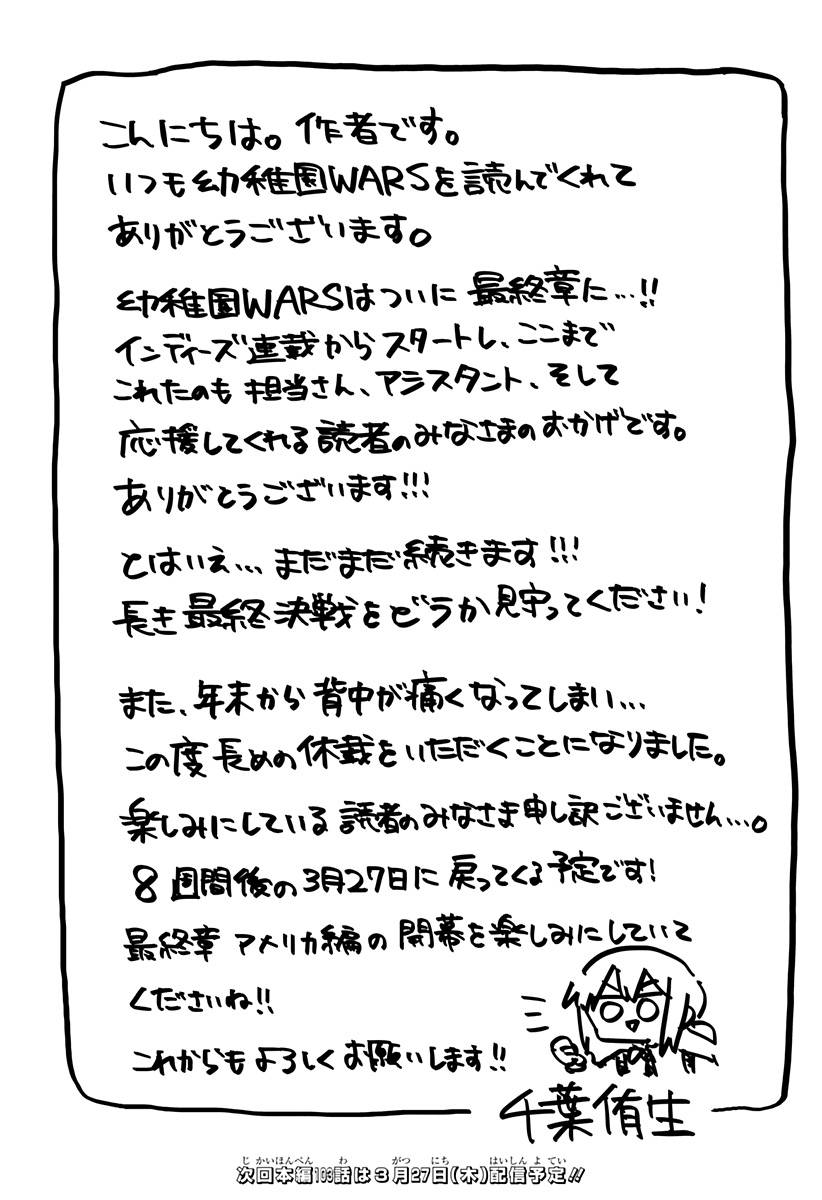 こんにちは。作者です。
いつも幼稚園WARSを読んでくれて
ありがとうございます。
幼稚園WARSはついに最終章に…!!
インディーズ連載からスタートし、ここまで
これたのも担当さん、アシスタント、そして
応援してくれる読者のみなさまのおかげです。
ありがとうございます!!!
とはいえ…まだまだ続きます!!!
長き最終決戦をどうか見守ってください!
また、年末から背中が痛くなってしまい…
この度長めの休載をいただくことになりました。
楽しみにしている読者のみなさま申し訳ございません…。
8週間後の3月27日に戻ってくる予定です!
最終章アメリカ編の開幕を楽しみにしていて
くださいね!!
これからもよろしくお願いします!!
千葉侑生
次回本編103話は3月27日(木)配信予定!!